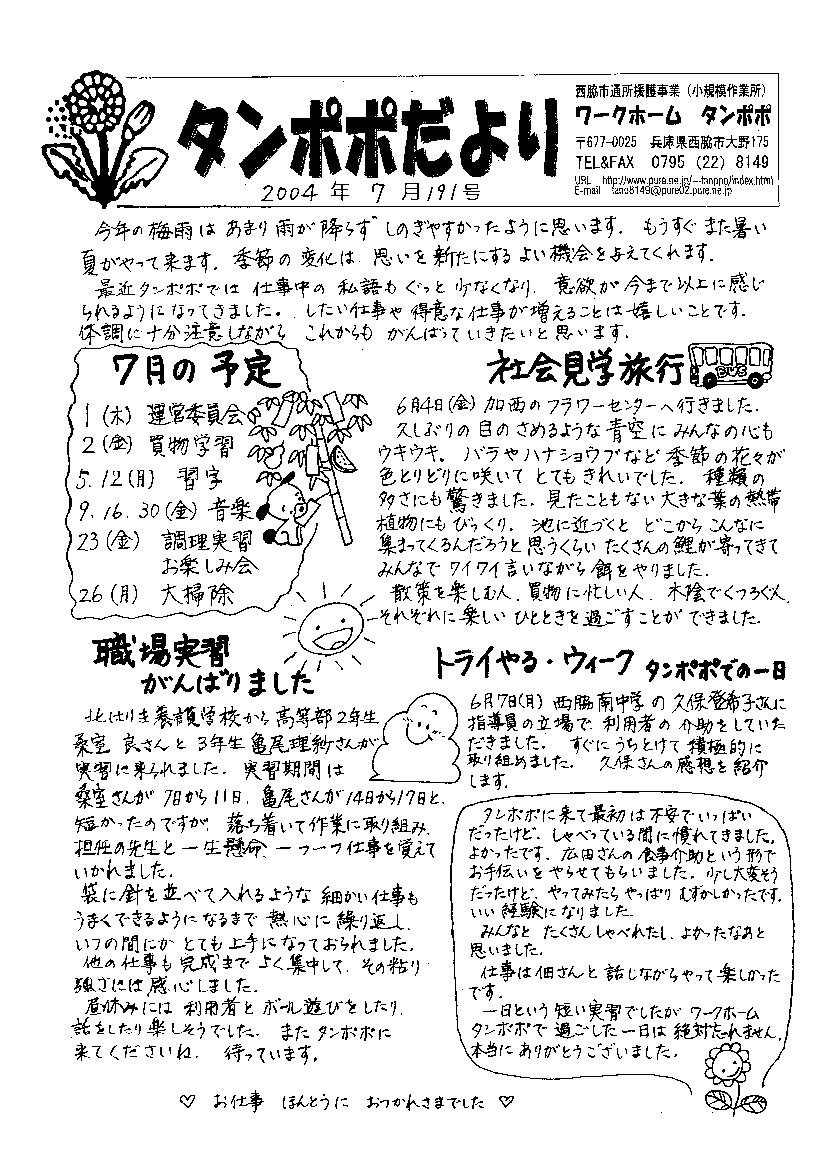 タンポポだより
2004年 7月191号
西脇市通所援護事業（小規模作業所）
ワークホーム タンポポ
〒677-0025 兵庫県西脇市大野175
TEL&FAX 0795 (22) 8149
今年の梅雨は あまり雨が降らず しのぎやすかったように思います。 もうすぐまた暑い
夏がやって来ます。季節の変化は、思いを新たにするよい機会を与えてくれます。
最近タンポポでは 仕事中の 私語もぐっと少なくなり、意欲が今まで以上に感じ
られるようになってきました。したい仕事や得意な仕事が増えることは嬉しいことです。
体調に十分注意しながら これからも がんばっていきたいと思います。
7月の予定
1(木) 運営委員会
2(金) 買物学習
5.12(月) 習字
9.16.30(金) 音楽
23(金) 調理実習
お楽しみ会
26(月) 大掃除
社会見学旅行
BUS
6月4日(金) 加西のフラワーセンターへ行きました。
久しぶりの目のさめるような青空に みんなの心も
ウキウキ。 バラやハナショウブなど季節の花々が
色とりどりに咲いて とてもきれいでした。 種類の
多さにも驚きました。見たこともない大きな葉の熱帯
植物にもびっくり。 池に近づくと どこからこんなに
集まってくるんだろうと思うくらい たくさんの鯉が寄ってきて
みんなで ワイワイ言いながら餌をやりました。
散策を楽しむ人、買物に忙しい人、木陰でくつろぐ人、
それぞれに楽しい ひとときを過ごすことが できました。
職場実習
がんばりました
北はりま養護学校から高等部2年生
桑室 良さんと 3年生亀尾理紗さんが
実習に来られました。実習期間は
桑室さんが 7日から11日、亀尾さんが14日から17日と、
短かったのですが、落ち着いて作業に取り組み、
担任の先生と 一生懸命、一つ一つ仕事を覚えて
いかれました。
袋に針を並べて入れるような 細かい仕事も
うまくできるようになるまで 熱心に繰り返し、
いつの間にか とても上手になっておられました。
他の仕事も 完成まで よく集中して、その粘り
強さには感心しました。
昼休みには 利用者と ボール遊びをしたり、
話をしたり楽しそうでした。 またタンポポに
来てくださいね。 待っています。
トライやる・ウィーク タンポポでの一日
6月7日(月) 西脇南中学の久保登希子さんに
指導員の立場で、利用者の介助をしていた
だきました。 すぐにうちとけて 積極的に
取り組めました。 久保さんの感想を紹介
します。
タンポポに来て最初は不安でいっぱい
だったけど、しゃべっている間に慣れてきました。
よかったです。広田さんの食事介助という形で
お手伝いを やらせてもらいました。少し大変そう
だったけど、やってみたらやっぱりむずかしかったです。
いい経験になりました。
みんなと たくさんしゃべれたし、よかったなあと
思いました。
仕事は佃さんと 話しながらやって楽しかった
です。
一日という短い実習でしたが ワークホーム
タンポポで 過ごした一日は絶対忘れません。
本当にありがとうございました。
♡ お仕事 ほんとうに おつかれさまでした ♡